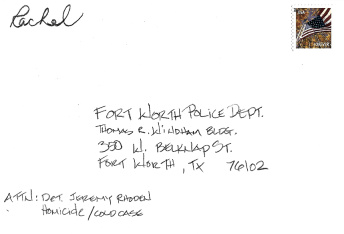 Rachel
USA
FOREVER
FORT WORTH POLICE DEPT.
THOMAS R. WINDHAM BLDG.
350 W. BELKNAP ST.
FORT WORTH, TX 76102
ATTN: DET. JEREMY RHODEN
HOMICIDE/COLD CASE